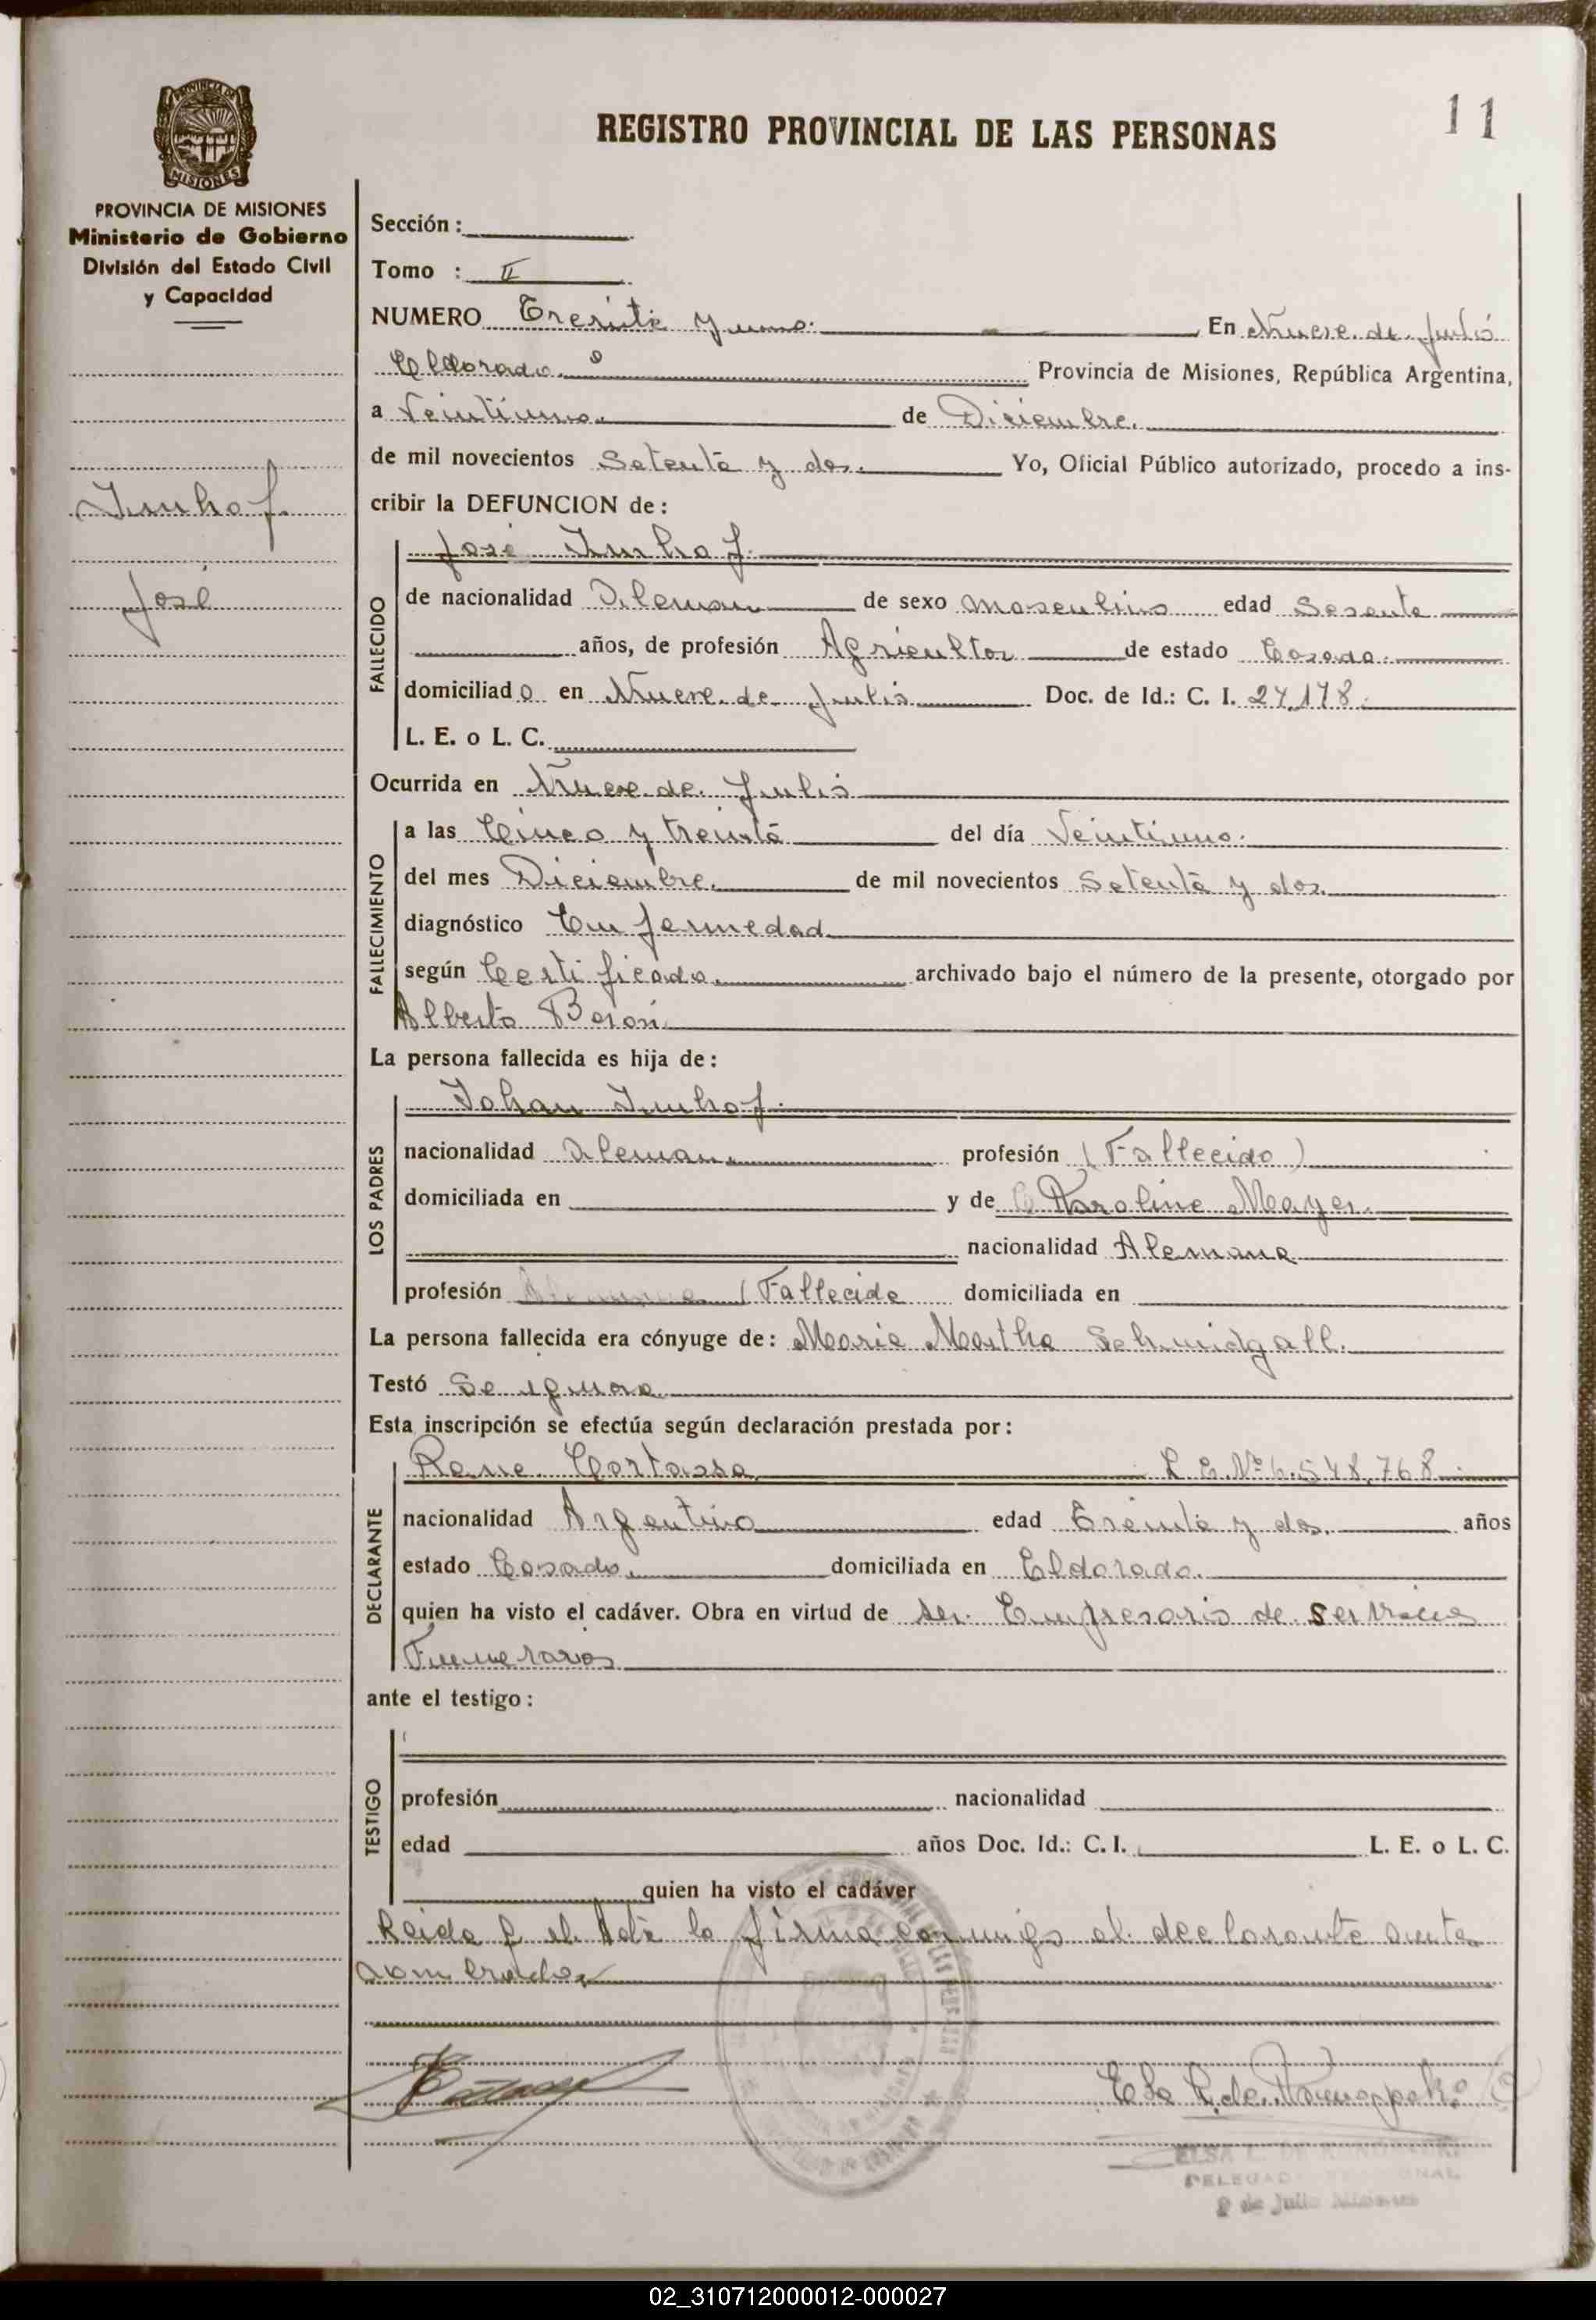 11
REGISTRO PROVINCIAL DE LAS PERSONAS
PROVINCIA DE MISIONES
Ministerio de Gobierno
División del Estado Civil
y Capacidad
Imhof
José
Sección:
Tomo : II
NUMERO Treinta y uno. En Nueve de Julio
Eldorado. Provincia de Misiones, República Argentina,
a Veintiuno. de Diciembre.
de mil novecientos Setenta y dos. Yo, Oficial Público autorizado, procedo a ins-
cribir la DEFUNCION de:
FALLECIDO
José Imhof.
de nacionalidad Aleman de sexo masculino edad Sesenta
años, de profesión Agricultor de estado Casado.
domiciliado en Nueve de Julio Doc. de Id.: C. I. 24.178.
L. E. o L. C.
Ocurrida en Nueve de Julio
FALLECIMIENTO
a las Cinco y treinta del día Veintiuno.
del mes Diciembre. de mil novecientos Setenta y dos.
diagnóstico Enfermedad.
según Certificado. archivado bajo el número de la presente, otorgado por
Alberto
La persona fallecida es hija de:
LOS PADRES
Johan Imhof.
nacionalidad Aleman. profesión (Fallecido)
domiciliada en y de Karoline Mayer.
nacionalidad Alemana
profesión (Fallecida domiciliada en
La persona fallecida era cónyuge de: Maria Martha Schmidgall.
Testó Se ignora.
Esta inscripción se efectúa según declaración prestada por:
DECLARANTE
Rene Cortassa L E. Nº 6.548.768.
nacionalidad Argentino edad Treinta y dos. años
estado Casado. domiciliada en Eldorado.
quien ha visto el cadáver. Obra en virtud de ser Empresario de Servicios
Funerarios
ante el testigo:
TESTIGO
profesión nacionalidad
edad años Doc. Id.: C. I. L. E. o L. C.
quien ha visto el cadáver
Leida el Acta la firma conmigo el declarante ante
nombrado
ELSA L. DE
9 de Julio Misiones
02_310712000012-000027